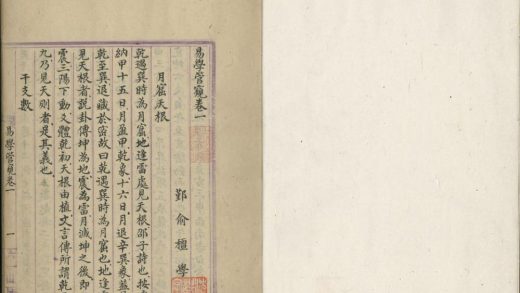 易學管窺卷一
鄞俞檀學
月窟天根
乾遇巽時為月窟地逢雷處見天根邵子詩也按
納甲十五日月盈甲乾象十六日月退辛巽象蓋
乾至巽退藏於密故曰乾遇巽時為月窟也地逢
見天根者說卦傳坤為地震為雷月滅坤之後即
震三陽下動爻體乾初天根由植文言傳所謂乾
九乃見天則者是其義也
干支數
易學管窺卷一
一